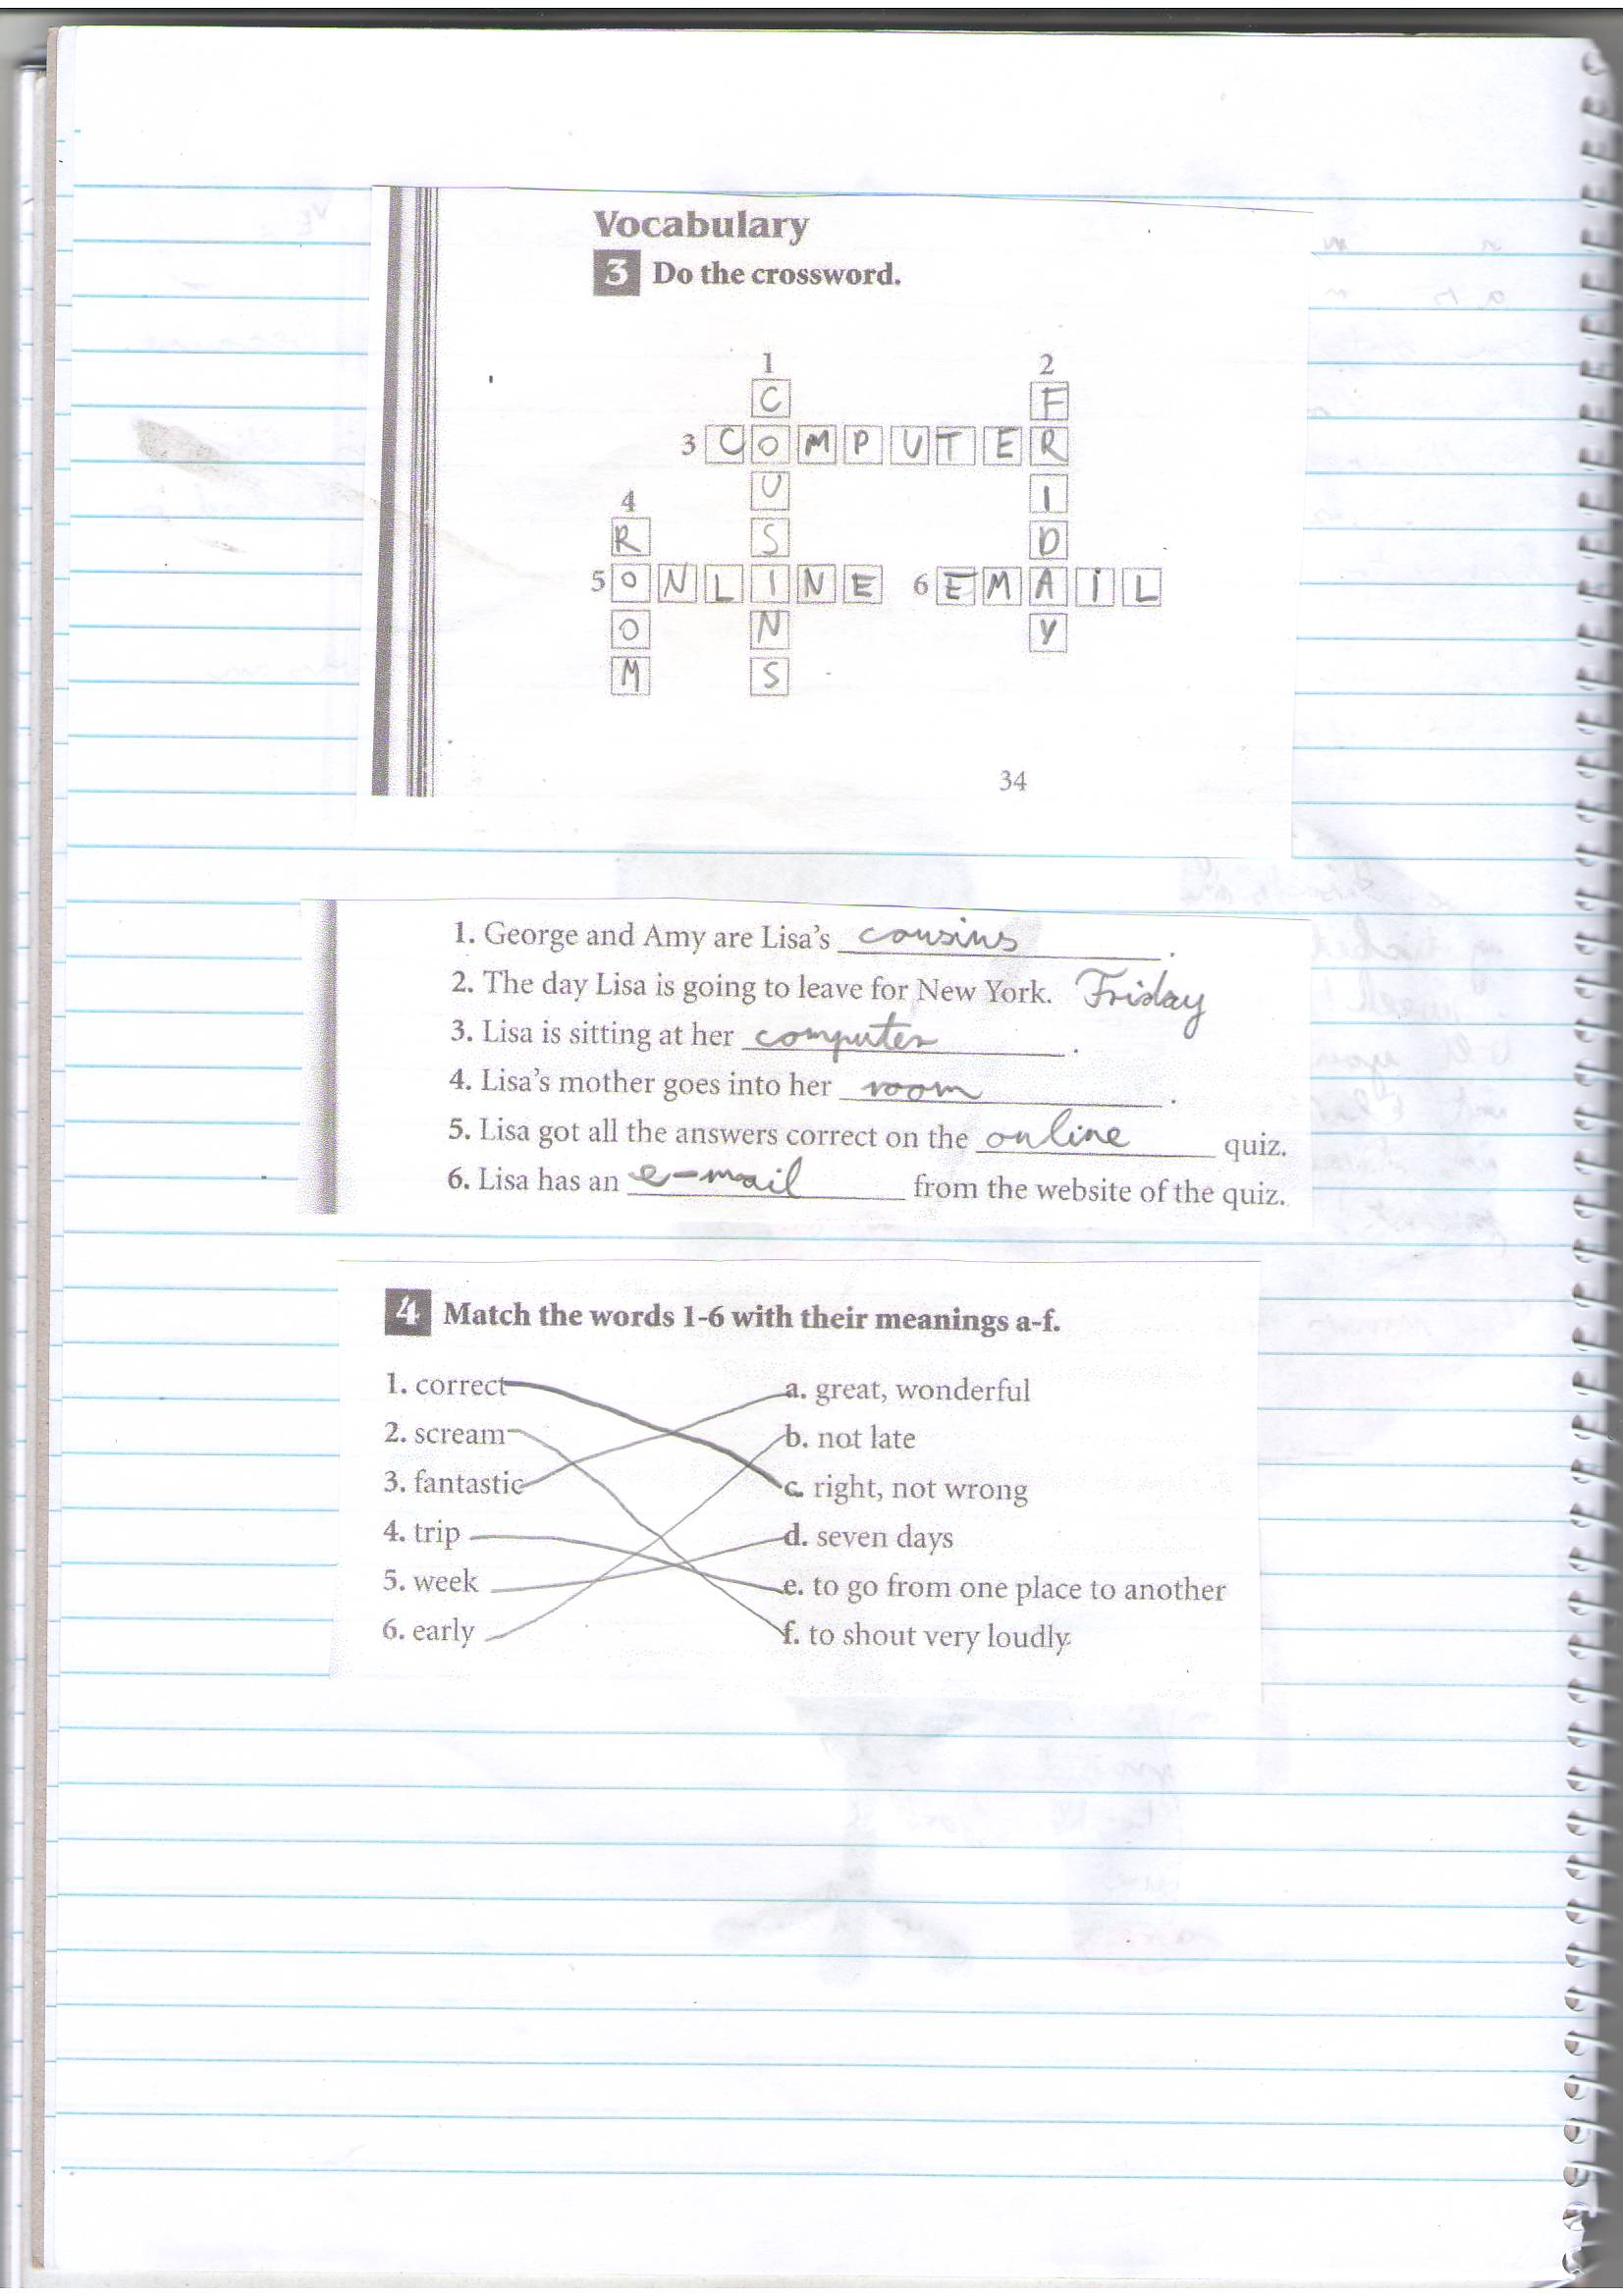 Vocabulary
3 Do the crossword.
1 2
C F
3 C O M P U T E R
U I
4
R S D
5 O N L I N E 6 E M A I L
O N Y
M S
34
1. George and Amy are Lisa's cousins.
2. The day Lisa is going to leave for New York. Friday
3. Lisa is sitting at her computer.
4. Lisa's mother goes into her room.
5. Lisa got all the answers correct on the online quiz.
6. Lisa has an e-mail from the website of the quiz.
4 Match the words 1-6 with their meanings a-f.
1. correct a. great, wonderful
2. scream b. not late
3. fantastic c. right, not wrong
4. trip d. seven days
5. week e. to go from one place to another
6. early f. to shout very loudly.